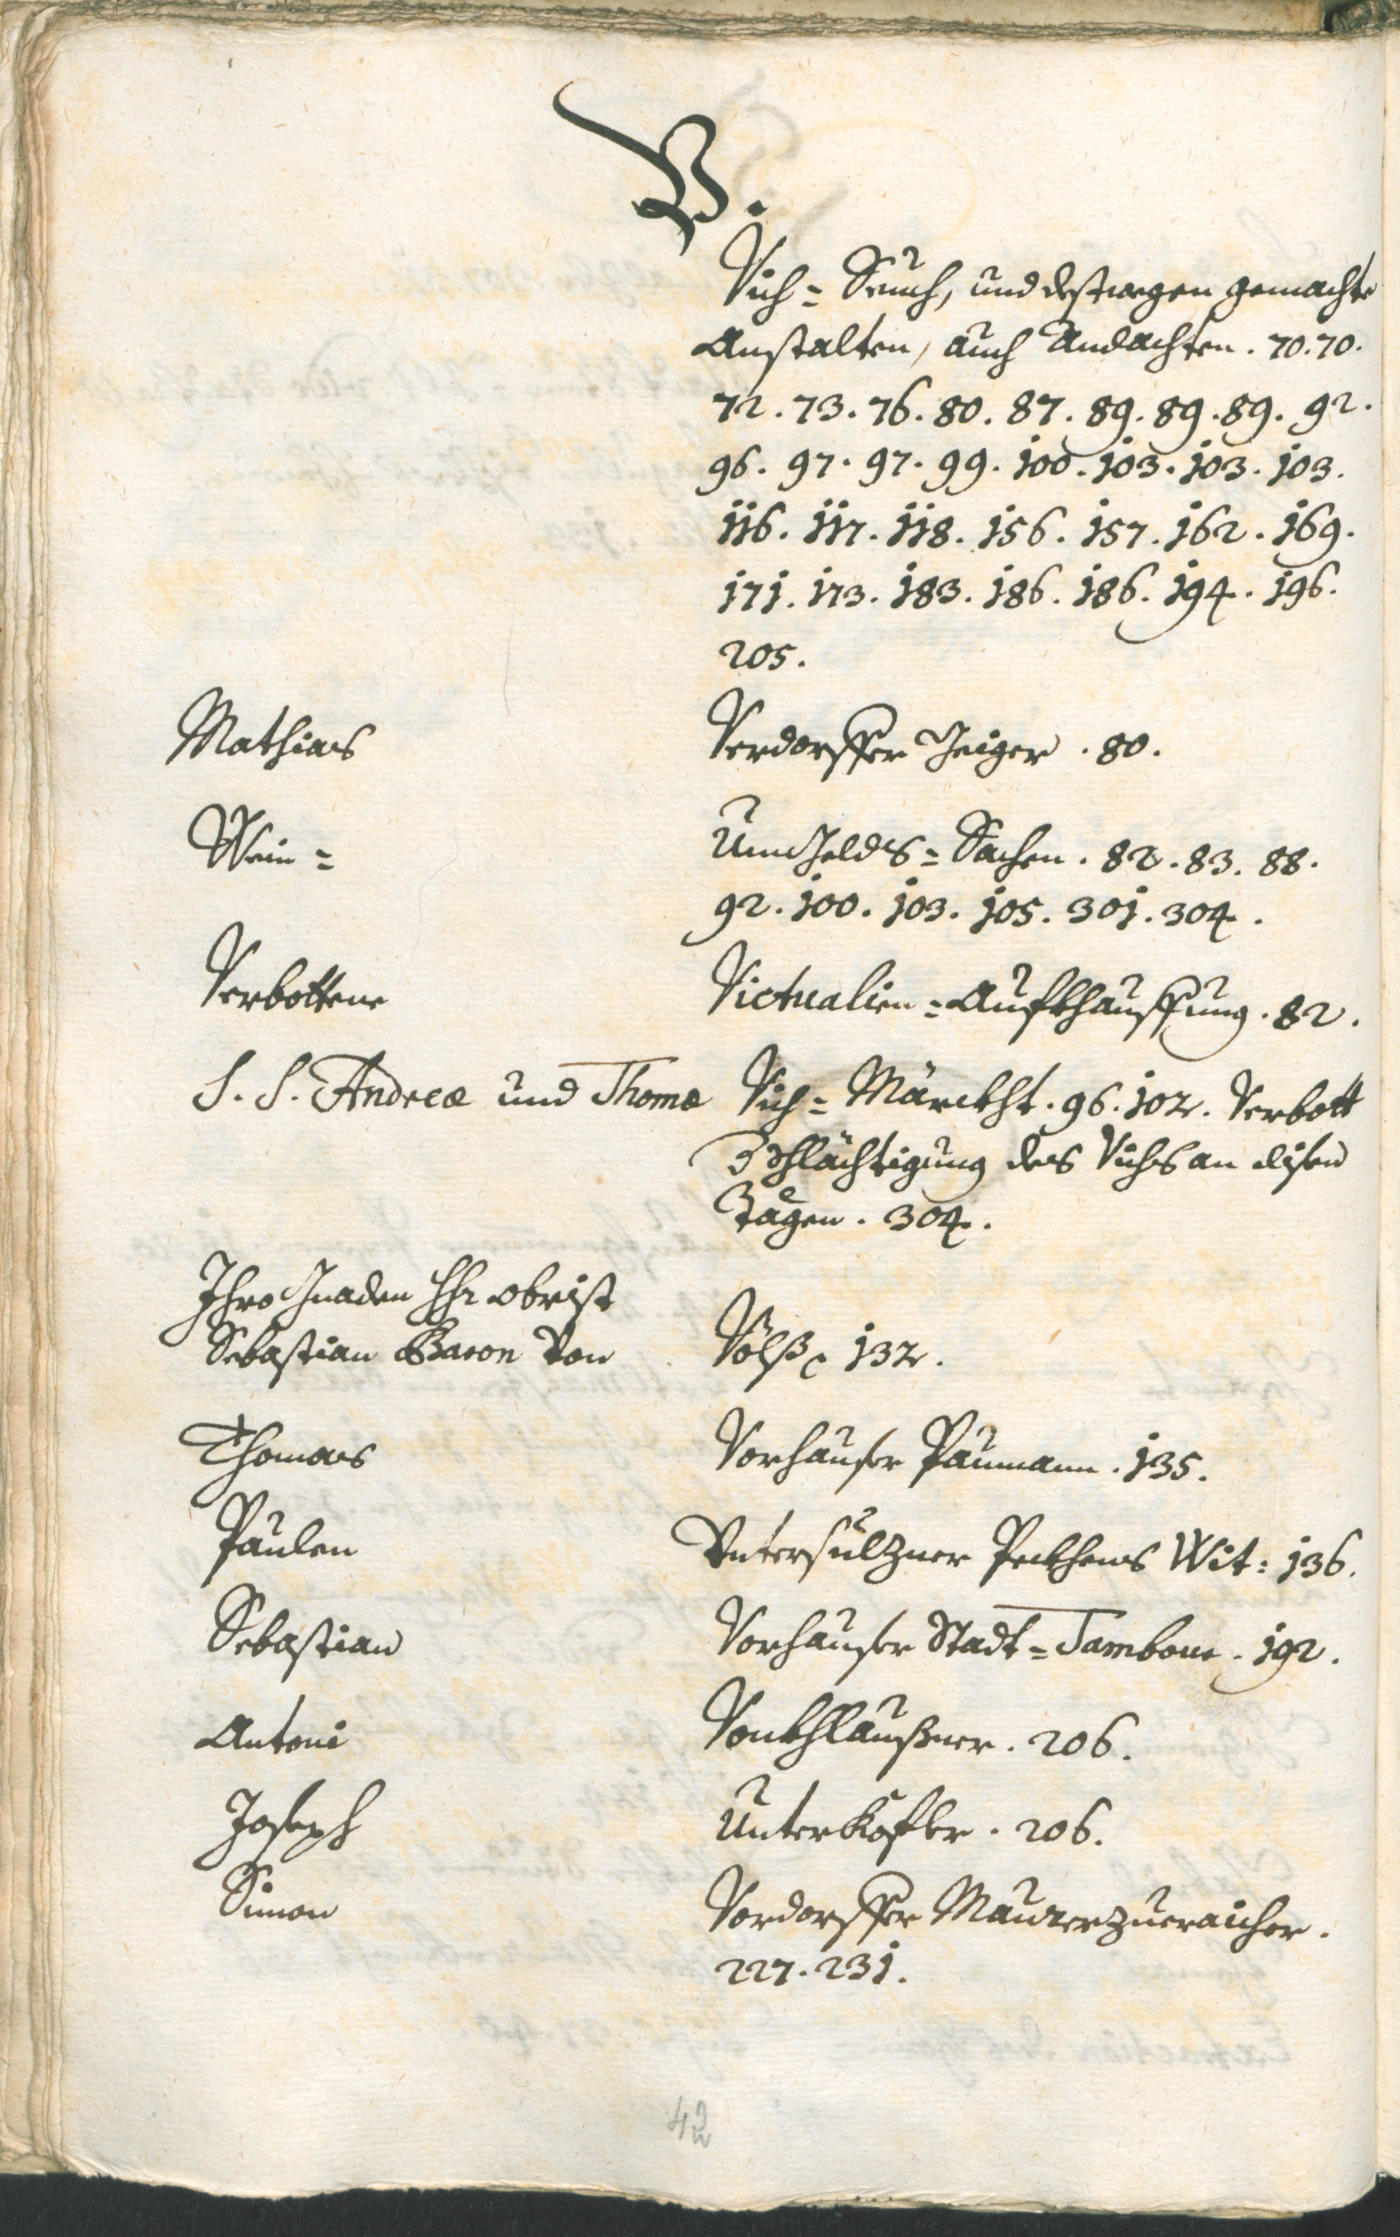 V.
Vich= Seuch, und destwegen gemachte
Anstalten, auch Andachten. 70. 70.
72. 73. 76. 80. 87. 89. 89. 89. 92.
96. 97. 97. 99. 100. 103. 103. 103.
116. 117. 118. 156. 157. 162. 169.
171. 173. 183. 186. 186. 194. 196.
205.
Mathias Verdorffer Geiger. 80.
Wein= Umgelds= Sachen. 82. 83. 88.
92. 100. 103. 105. 301. 304.
Verbottene Victualien=Aufkhauffung. 82.
S. S. Andreæ und Thomæ Vich= Märckht. 96. 102. Verbott
Schlächtigung des Vichs an disen
Tägen. 304.
Ihro Gnaden Hr obrist
Sebastian Baron Von Völß. 132.
Thomas Vorhauser Paumann. 135.
Paulen Untersulzner Pekhens Wit: 136.
Sebastian Vorhauser Stadt=Tambour. 192.
Antoni Vonkhlaußner. 206.
Joseph Unterkofler. 206.
Simon Vordorffer Maurerzueraicher.
227. 231.
42